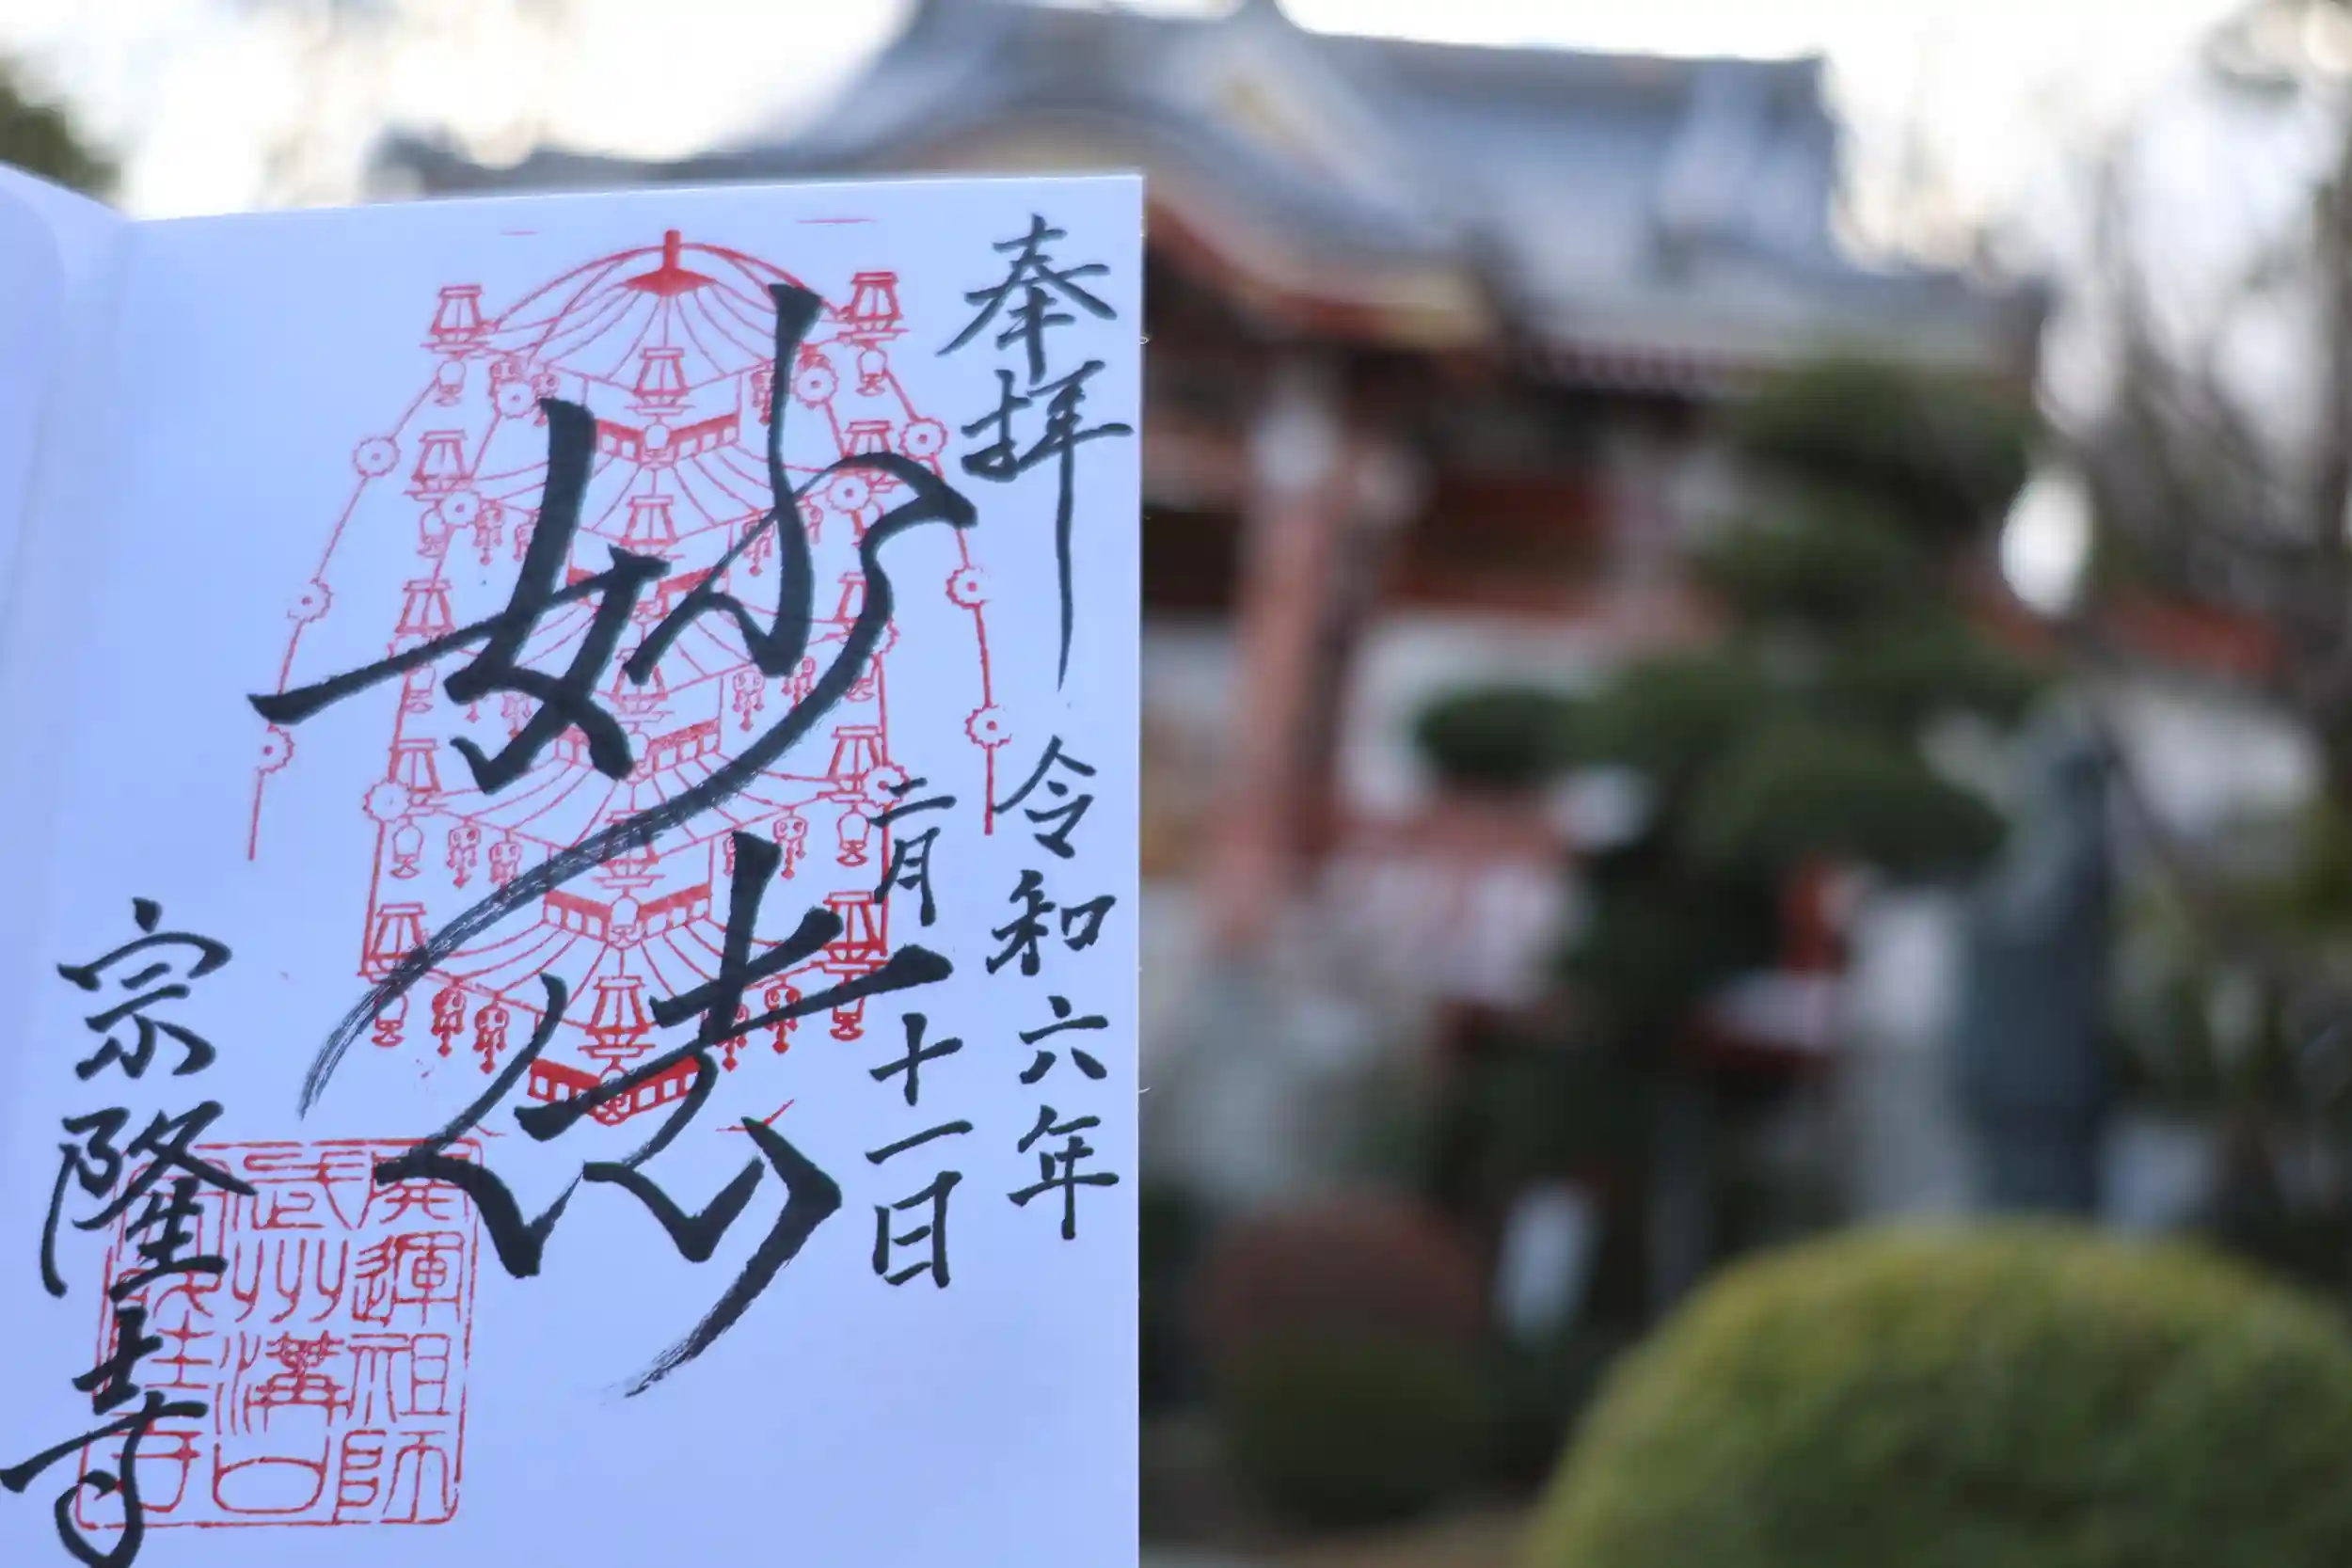 奉拝
令和六年
二月十一日
妙法
宗隆寺
開運祖師
武州溝口
宗隆寺